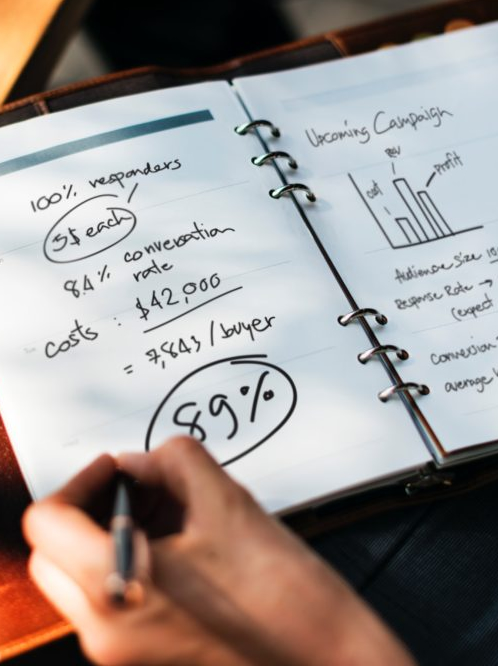 100% responders
5$ each
8.4% conversation
rate
costs : $42,000
= 7,843 / buyer
89%
Upcoming Campaign
rev
cost
profit
Audience Size
Response Rate →
(expect
conversion
average